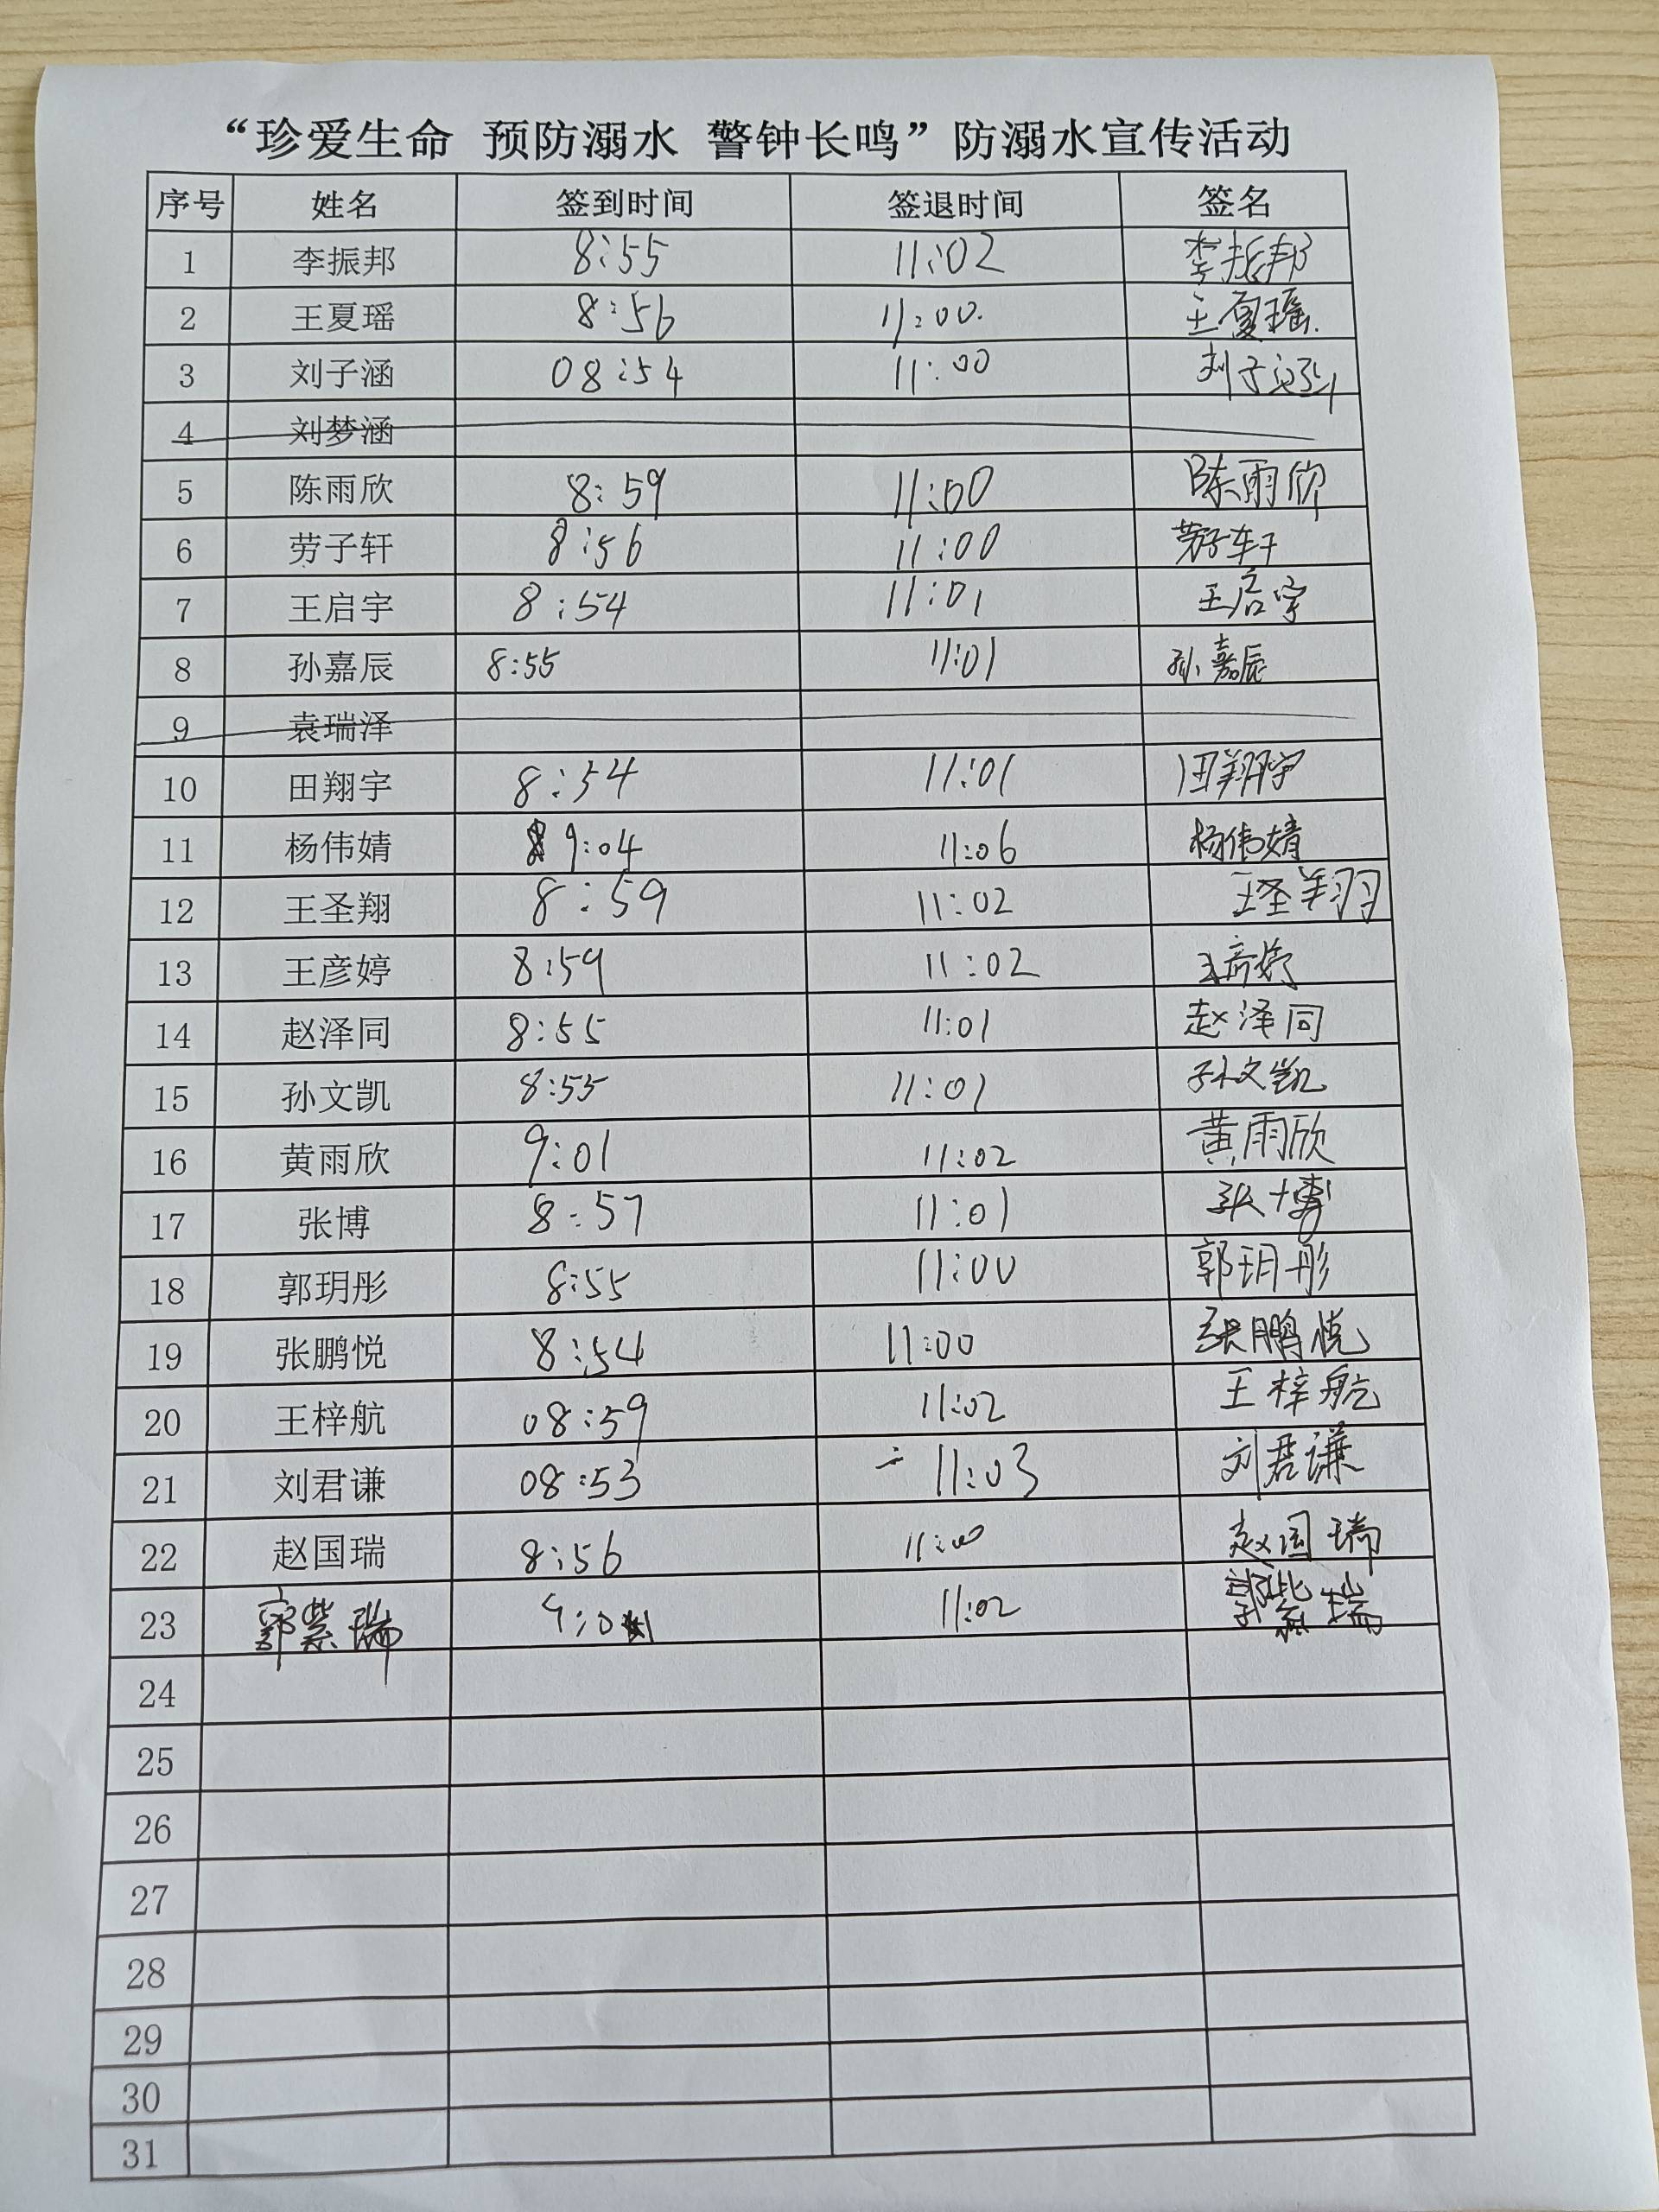 “珍爱生命 预防溺水 警钟长鸣”防溺水宣传活动
序号 姓名 签到时间 签退时间 签名
1 李振邦 8:55 11:02 李振邦
2 王夏瑶 8:56 11:00. 王夏瑶
3 刘子涵 08:54 11:00 刘子涵
4 刘梦涵
5 陈雨欣 8:59 11:00 陈雨欣
6 劳子轩 8:56 11:00 劳子轩
7 王启宇 8:54 11:01 王启宇
8 孙嘉辰 8:55 11:01 孙嘉辰
9 袁瑞泽
10 田翔宇 8:54 11:01 田翔宇
11 杨伟婧 9:04 11:06 杨伟婧
12 王圣翔 8:59 11:02 王圣翔
13 王彦婷 8:59 11:02 王彦婷
14 赵泽同 8:55 11:01 赵泽同
15 孙文凯 8:55 11:01 孙文凯
16 黄雨欣 9:01 11:02 黄雨欣
17 张博 8:57 11:01 张博
18 郭玥彤 8:55 11:00 郭玥彤
19 张鹏悦 8:54 11:00 张鹏悦
20 王梓航 08:59 11:02 王梓航
21 刘君谦 08:53 11:03 刘君谦
22 赵国瑞 8:56 11:00 赵国瑞
23 郭紫瑞 9:01 11:02 郭紫瑞
24
25
26
27
28
29
30
31